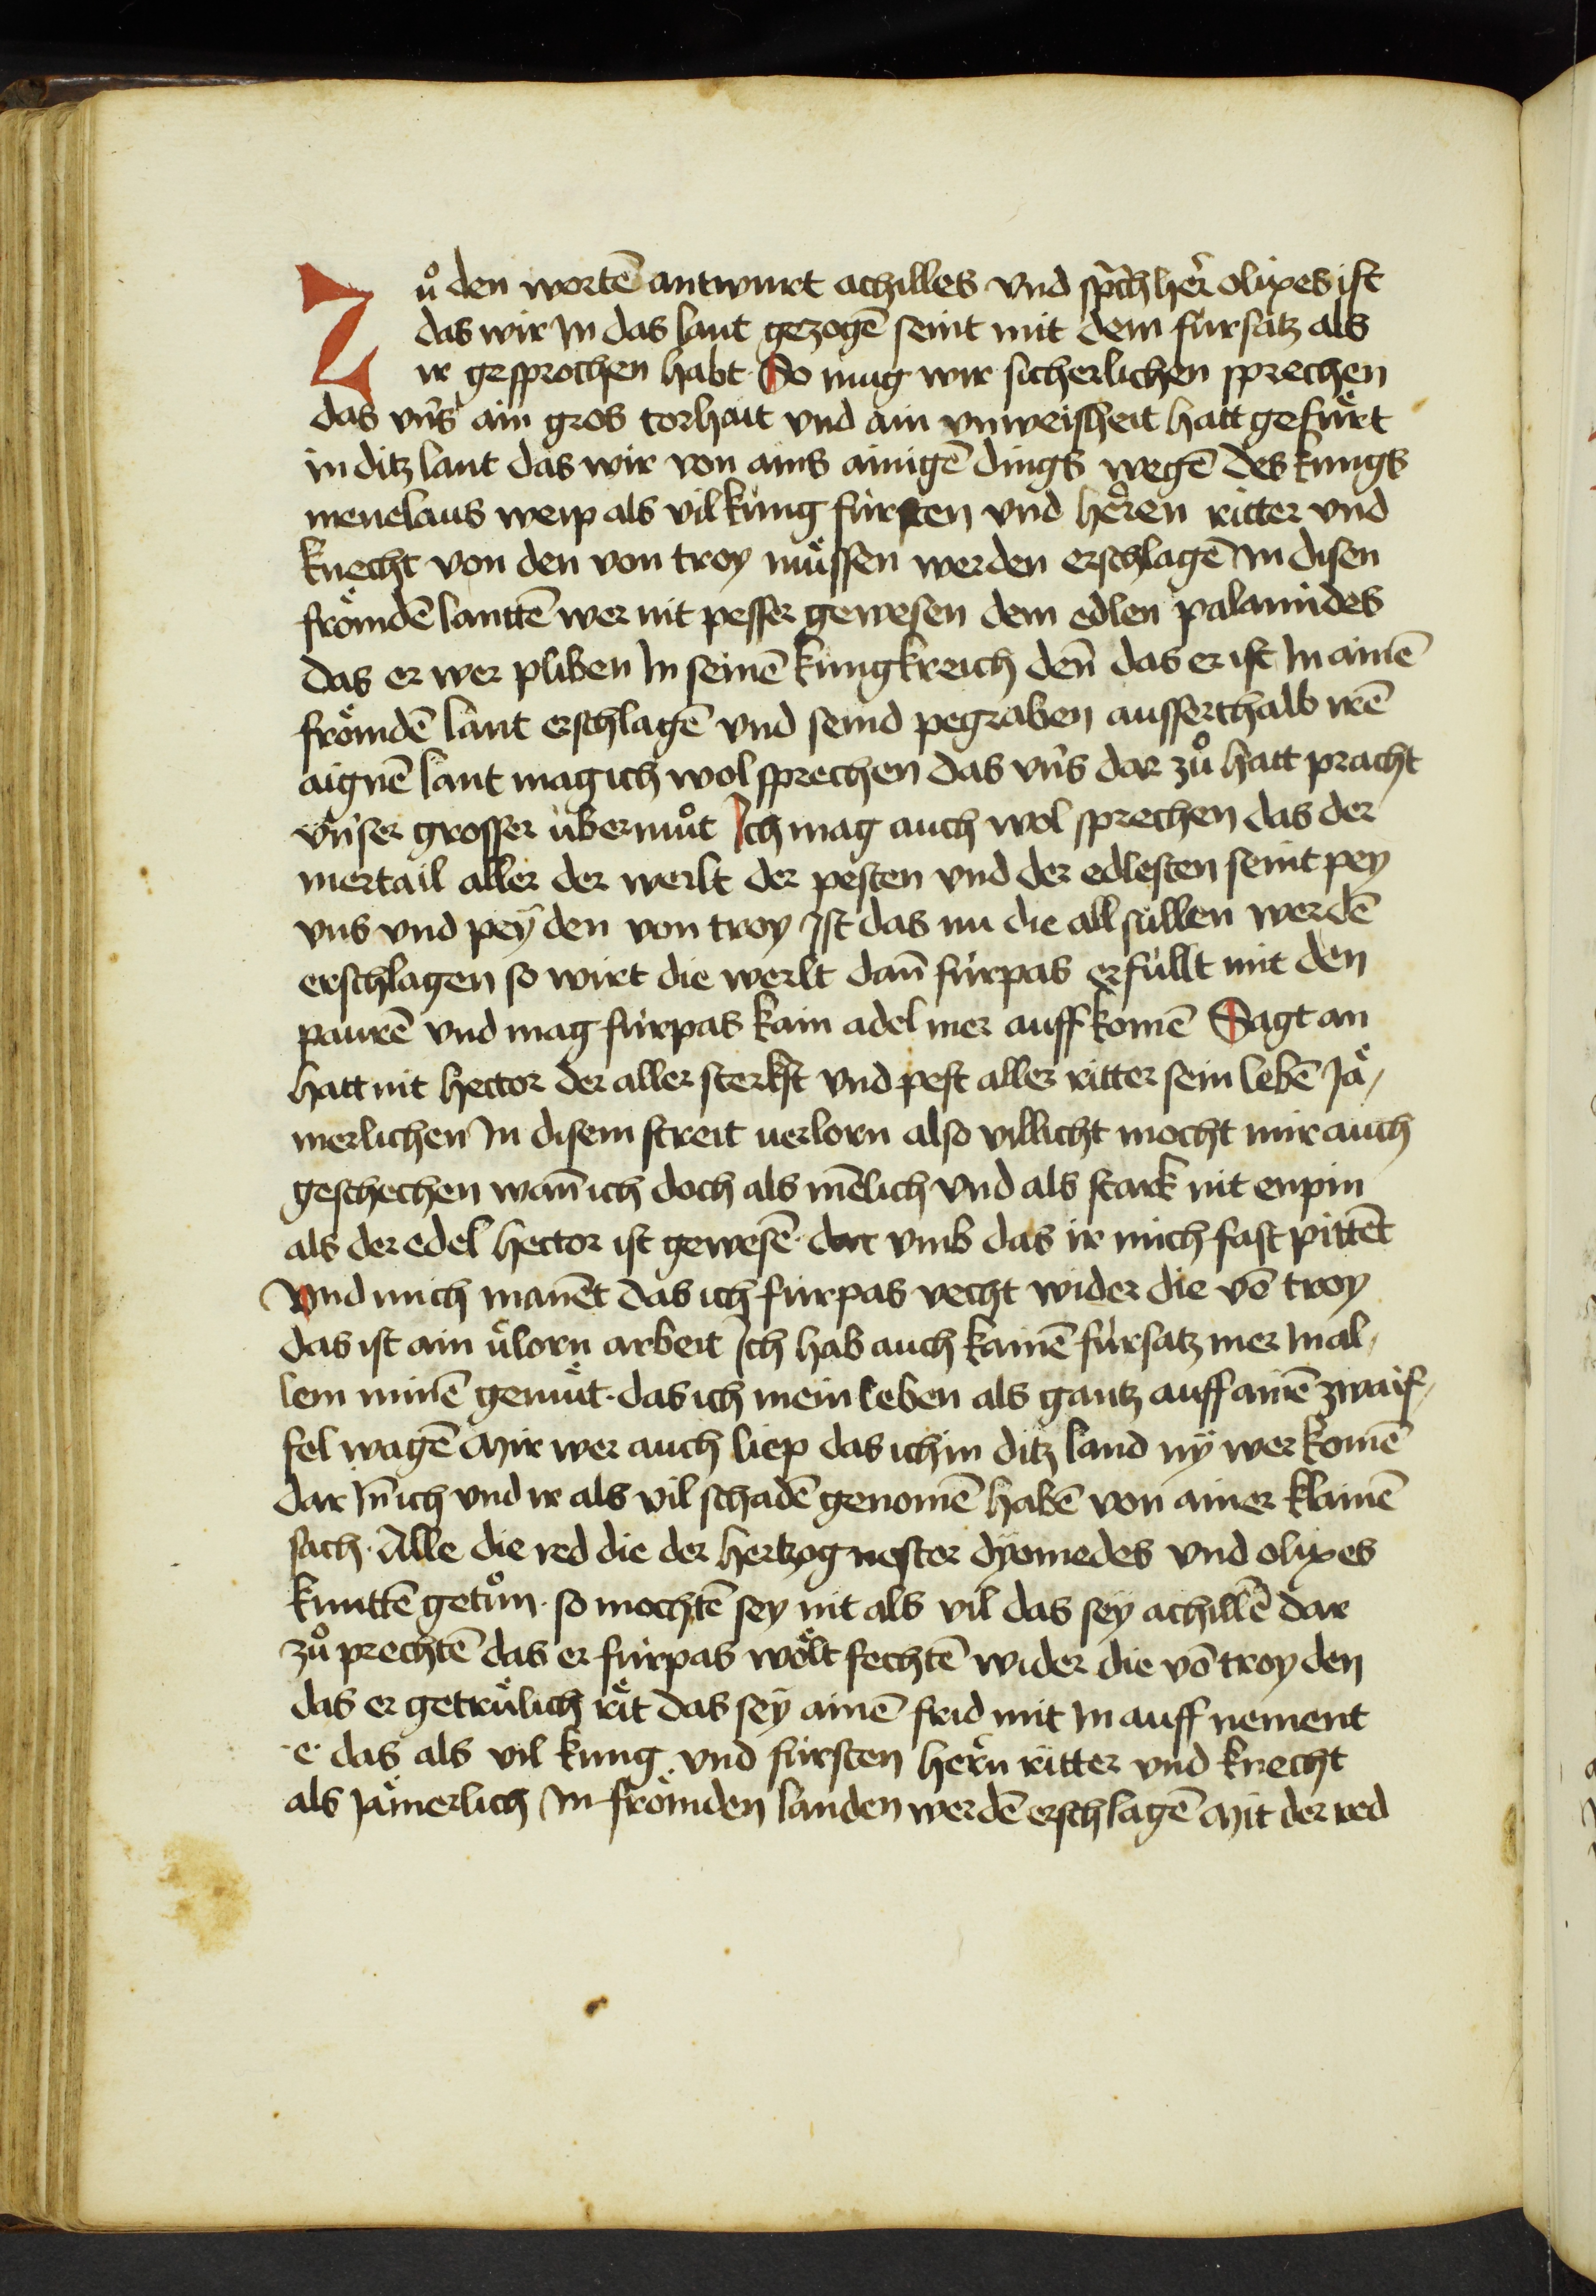 Zuͦ den wortē antwurt achilles vnd sp̄ch her̄ olixes ist
das wir In das lant gezogē seint mit dem fürsatz als
ir gesprochen habt · So mug wir sicherlichen sprechen
das vn̄s ain gros torhait vnd ain vnweisheit hatt gefuͤrt
in ditz lant das wir von ains ainigē dings wegē des kungs
menelaus weip als vil kung fürsten vnd heͤren ritter vnd
knecht von den von troy muͤssen werden erschlagē In disen
froͤmdē lanttē wer nit pesser gewesen dem edlen palamides
das er wer pliben In seinē kungkreich den̄ das er ist In ainē
froͤmdē lant erschlagē vnd seind pegraben ausserthalb irē
aignē lant mag ich wol sprechen das vn̄s dar zuͦ hatt pracht
vn̄ser grosser übermuͦt Ich mag auch wol sprechen das der
mertail aller der werlt der pesten vnd der edlesten seint pey
vns vnd peÿ den von troy Ist das nu die all süllen werdē
erschlagen so wirt die werlt dan̄ fürpas erfüllt mit den
paurē vnd mag fürpas kain adel mer auff komē Sagt an
hatt nit hector der aller sterkst vnd pest aller ritter sein lebē Jaͤ-
merlichen In disem streit uerlorn also villicht mocht mir auch
geschechen wan̄ ich doch als mēlich vnd als stark nit enpin
als der edel hector ist gewesē · dar vmb das ir mich fast pittēt
vnd mich manēt das ich fürpas vecht wider die vō troy
das ist ain u͛lorn arbeit Ich hab auch kainē fürsatz mer In al-
lem minē gemuͤt · das ich mein leben als gantz auff ainē zwaif-
fel wagē Mir wer auch liep das ich in ditz land nÿ wer komē
dar In̄ ich vnd ir als vil schadē genomē habē von ainer klainē
sach · Alle die red die der hertzog nestor dÿomedes vnd olixes
kunttē getuͦn · so mochtē sey nit als vil das seÿ achillē dar
zuͦ prechtē das er fürpas woͤlt fechtē wider die vō troy den
das er getruͤlich raͤt das seÿ ainē frid mit In auff nement
· e · das als vil kung vnd fürsten herͤn ritter vnd knecht
als Jaͤmerlich In froͤmden landen werdē erschlagē Mit der red